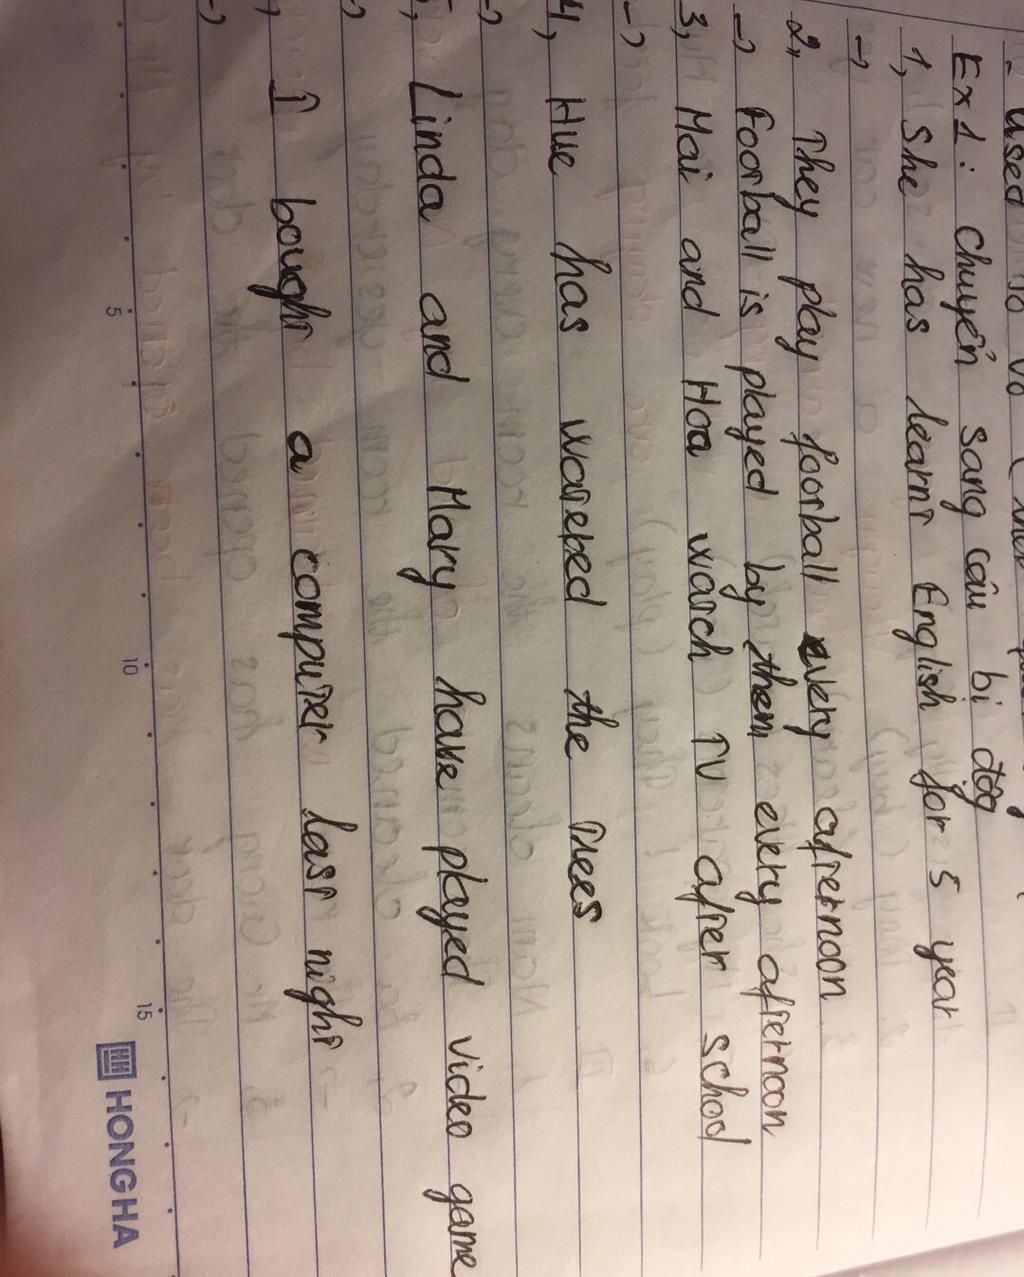 Used to Vo
Ex 1: chuyển sang câu bị động
1, She has learnt English for 5 year
→
2, They play football every afternoon
→ Football is played by them every afternoon
3, Mai and Hoa watch TV after school
→
4, Hue has watered the trees
→
5, Linda and Mary have played video game
→
I bought a computer last night
→
5 10 15
HH HONG HA